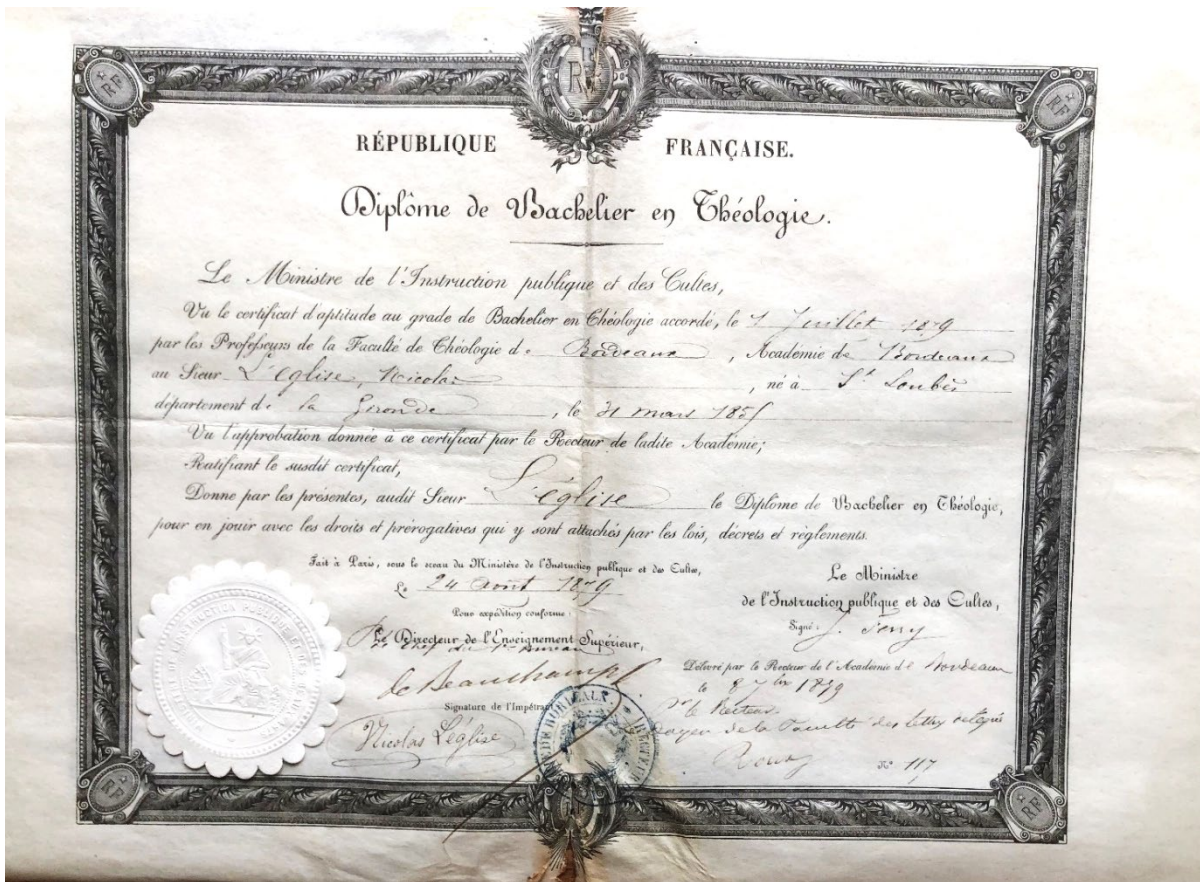 RF
RF
RF
RÉPUBLIQUE FRANÇAISE.
Diplôme de Bachelier en Théologie.
Le Ministre de l'Instruction publique et des Cultes,
Vu le certificat d'aptitude au grade de Bachelier en Théologie accordé, le Juillet 1879
par les Professeurs de la Faculté de Théologie de Bordeaux, Académie de Bordeaux
au Sieur L'église, Nicolas, né à St Loubès
département de la Gironde, le 31 mars 185
Vu l'approbation donnée à ce certificat par le Recteur de ladite Académie;
Ratifiant le susdit certificat,
Donne par les présentes, audit Sieur L'église le Diplôme de Bachelier en Théologie,
pour en jouir avec les droits et prérogatives qui y sont attachés par les lois, décrets et règlements.
Fait à Paris, sous le sceau du Ministère de l'Instruction publique et des Cultes,
Le 24 Août 1879
Pour expédition conforme:
Le Directeur de l'Enseignement Supérieur,
Le Chef du 1er Bureau
de Beauchamp
Signature de l'Impétrant
Nicolas Léglise
Le Ministre
de l'Instruction publique et des Cultes,
Signé: J. Ferry
Délivré par le Recteur de l'Académie de Bordeaux
le 8 7bre 1879
Pr le Recteur
Doyen de la Faculté des lettres délégué
Roux
N° 117
BORDEAUX
RF
RF